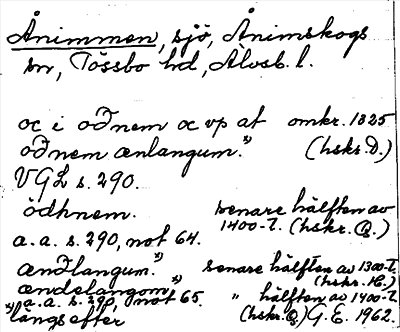 Ånimmen, sjö, Ånimskogs
sn, Tössbo hd, Älvsb. l.
oc i oðnem oc vp at omkr. 1325
oðnem ænlangum.x) (hskr. D.)
VGL s. 290.
ödhnem. senare hälften av
1400-t. (hskr. Q.)
a.a. s. 290, not 64.
ændlangum.x) senare hälften av 1300-t.
(hskr. H.)
ændelangom.x) " hälften av 1400-t.
a.a. s. 290, not 65. (hskr. Q.) G.E. 1962.
x) längsefter